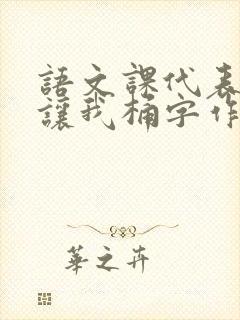 語文課代表
讓我桶字作
華之卉